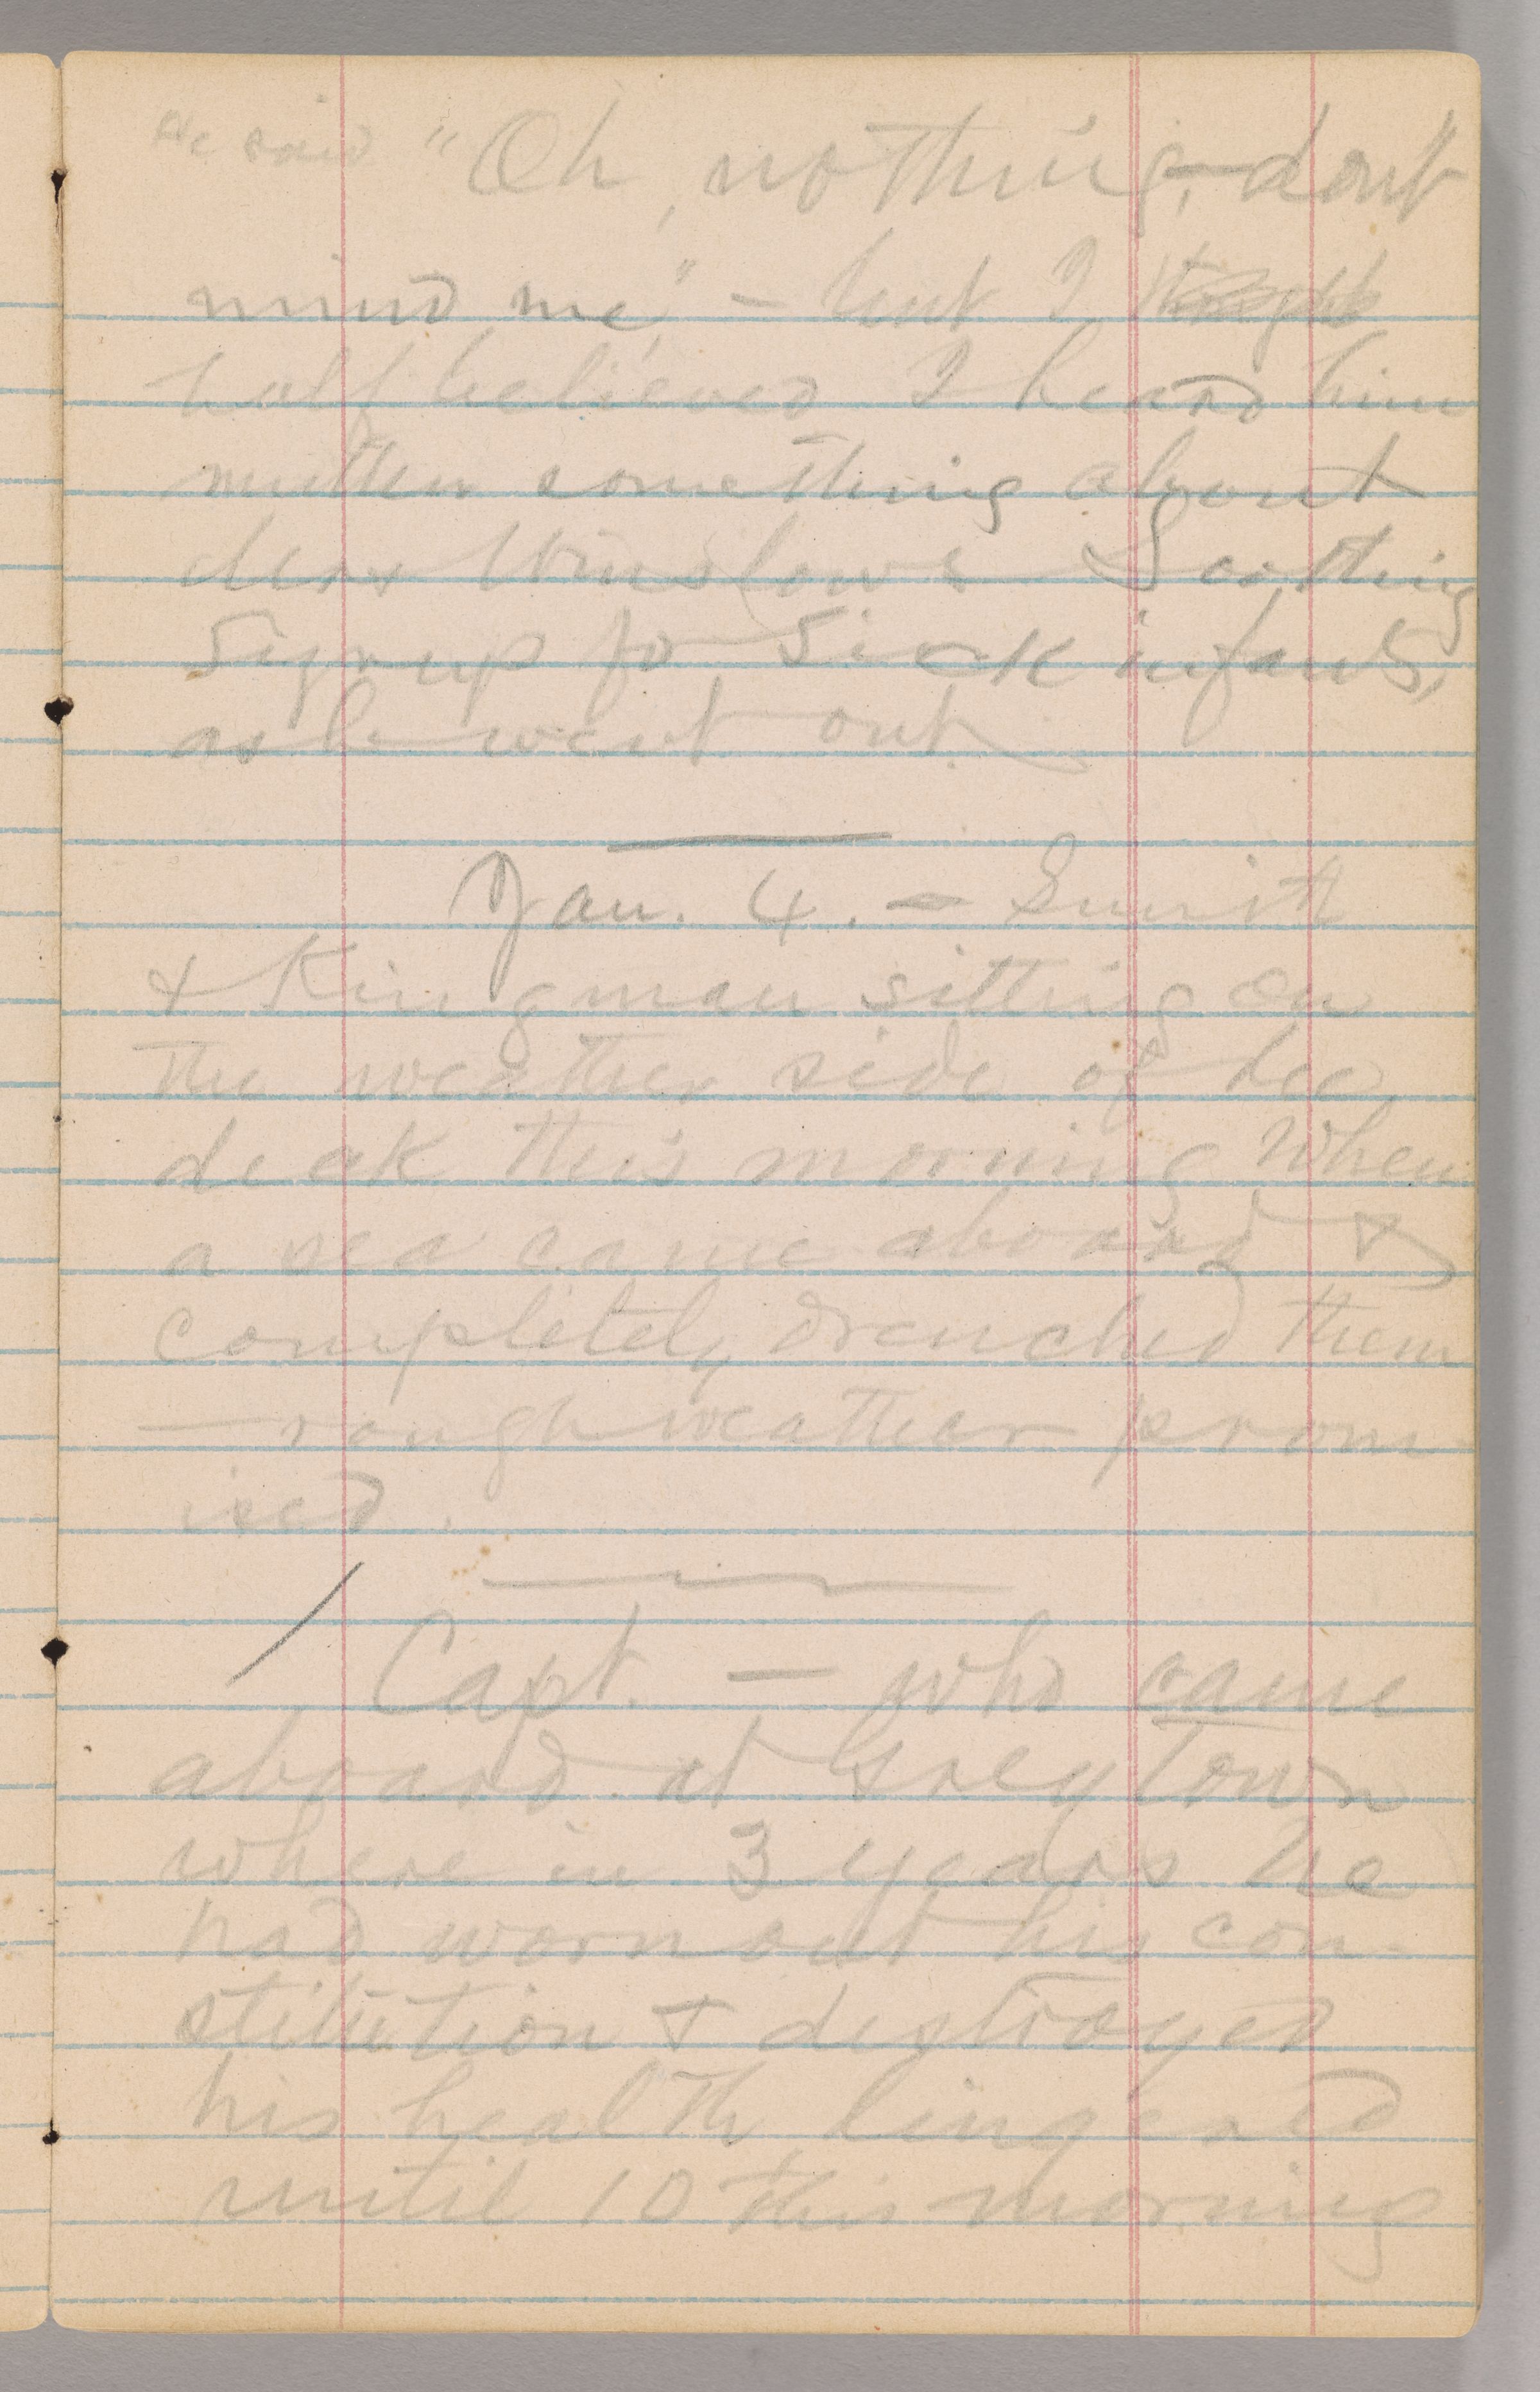 He said "Oh, nothing, dont
mind me," – but I thought
half believed I heard him
mutter something about
Winslow's Soothing
Syrup for Sick infants,
as he went out.
Jan. 4. – Smith
& Kingman sitting on
the weather side of the
deck this morning when
a sea came aboard &
completely drenched them
— rough weather prom
ised.
Capt. — who came
aboard at Greytown
where in 3 years he
had worn out his con-
stitution & destroyed
his health lingered
until 10 this morning